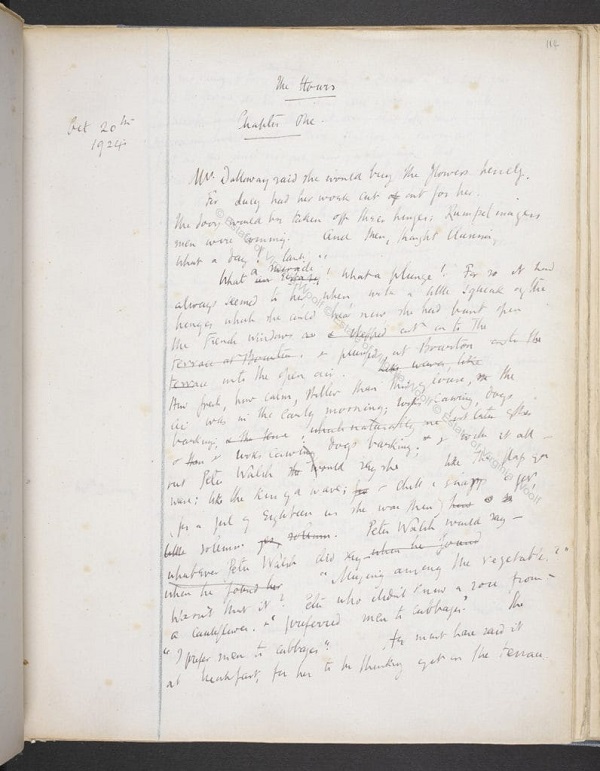 114
The Hours
Chapter One.
Oct 20th
1924
Mrs. Dalloway said she would buy the flowers herself.
For Lucy had her work cut out for her.
The doors would be taken off their hinges; Rumpelmayers
men were coming. And then, thought Clarissa,
what a day!
What a miracle! What a plunge! For so it had
always seemed to her when, with a little squeak of the
hinges which she could hear now she had burst open
the French windows & stepped out on to the
terrace at Bourton, & plunged at Bourton onto the
terrace into the open air. like waves, like
How fresh, how calm, stiller than this of course, the
air was in the early morning; cawing, dogs
barking;
rooks cawing dogs barking; & with it all —
out Peter Walsh would say she like the flap of a
wave; like the kiss of a wave; chill & sharp & yet
(for a girl of eighteen as she was then)
little solemn solemn. Peter Walsh would say —
whatever Peter Walsh did say when he found
when he found her "Musing among the vegetables?"
Wasn't that it? who didn't know a rose from
a cauliflower. "I preferred men to cabbages". The
"I prefer men to cabbages". He must have said it
at breakfast, for her to be thinking of it on the terrace
© Estate of Virginia Woolf